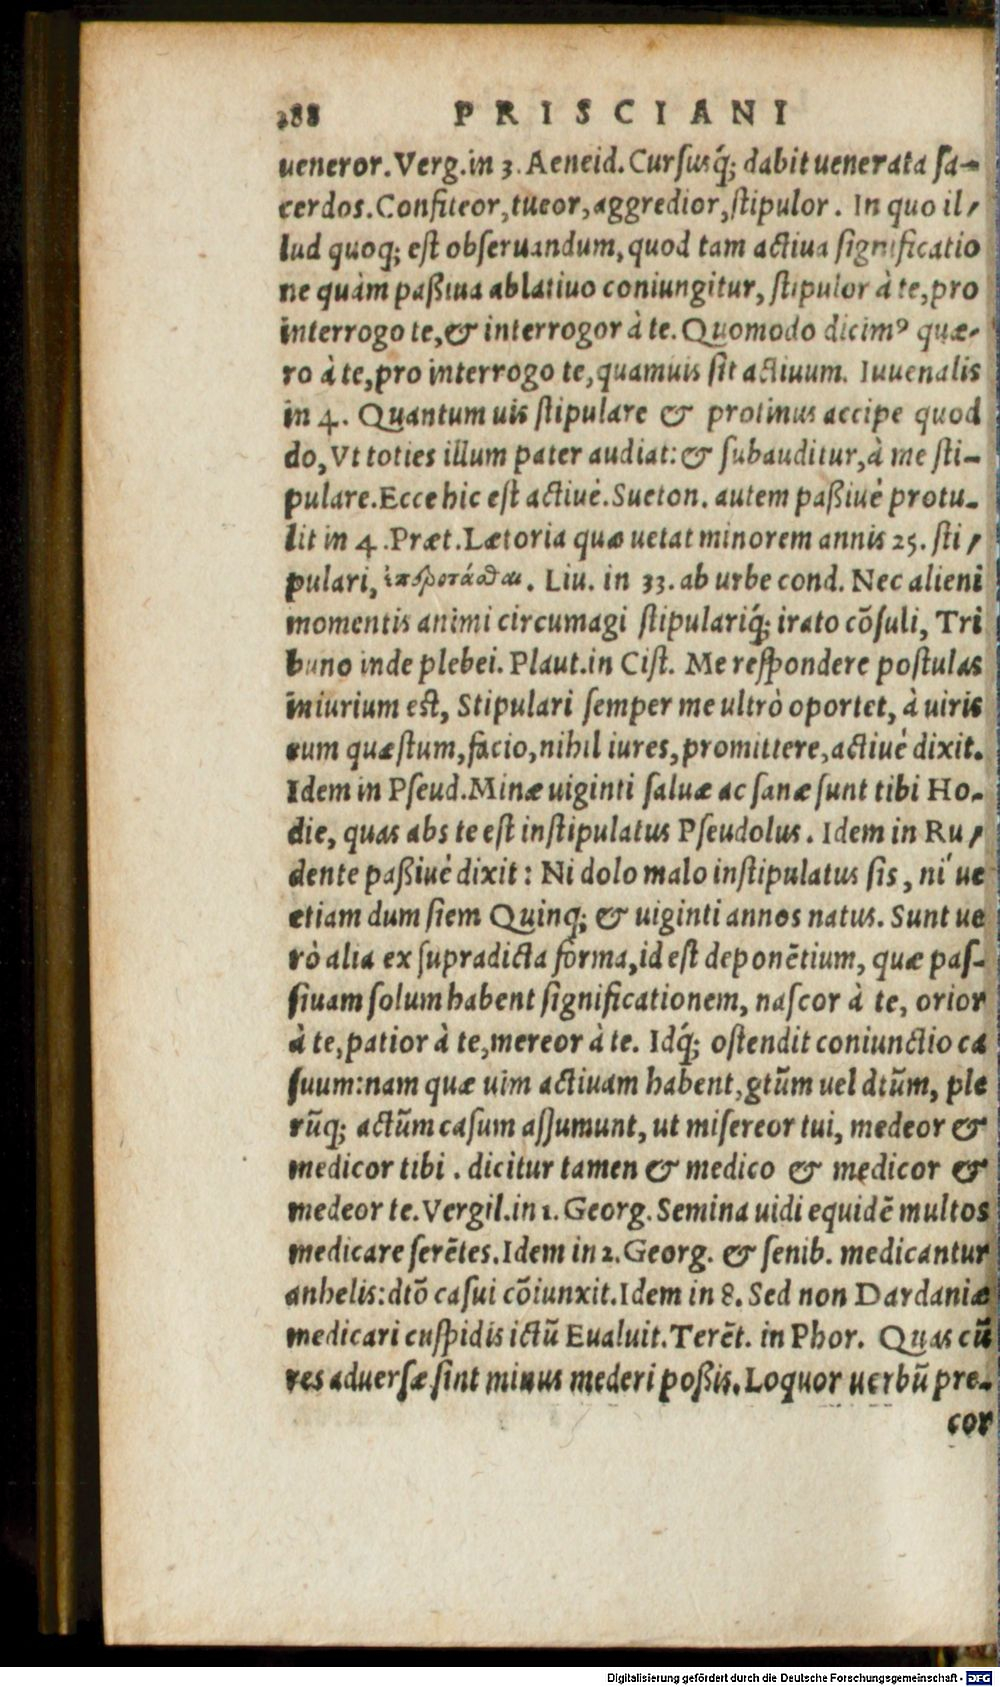 288 PRISCIANI
ueneror. Verg. in 3. Aeneid. Cursusq́; dabit uenerata sa-
cerdos. Confiteor, tueor, aggredior, stipulor. In quo il-
lud quoq; est obseruandum, quod tam actiua significatio
ne quàm paßiua ablatiuo coniungitur, stipulor à te, pro
interrogo te, & interrogor à te. Quomodo dicimꝰ quæ-
ro à te, pro interrogo te, quamuis sit actiuum. Iuuenalis
in 4. Quantum uis stipulare & protinus accipe quod
do, Vt toties illum pater audiat: & subauditur, à me sti-
pulare. Ecce hic est actiuè. Sueton. autem paßiuè protu-
lit in 4. Præt. Lætoria quæ uetat minorem annis 25. sti-
pulari, . Liu. in 33. ab urbe cond. Nec alieni
momentis animi circumagi stipulariq́; irato cõsuli, Tri
buno inde plebei. Plaut. in Cist. Me respondere postulas
iniurium est, Stipulari semper me ultrò oportet, à uiris
eum quæstum, facio, nihil iures, promittere, actiuè dixit.
Idem in Pseud. Minæ uiginti saluæ ac sanæ sunt tibi Ho-
die, quas abs te est instipulatus Pseudolus. Idem in Ru-
dente paßiuè dixit: Ni dolo malo instipulatus sis, ní ue
etiam dum siem Quinq; & uiginti annos natus. Sunt ue
rò alia ex supradicta forma, id est deponẽtium, quæ pas-
siuam solum habent significationem, nascor à te, orior
à te, patior à te, mereor à te. Idq́; ostendit coniunctio ca
suum: nam quæ uim actiuam habent, gtũm uel dtũm, ple
rũq; actũm casum assumunt, ut misereor tui, medeor &
medicor tibi. dicitur tamen & medico & medicor &
medeor te. Vergil. in 1. Georg. Semina uidi equidẽ multos
medicare serẽtes. Idem in 2. Georg. & senib. medicantur
anhelis: dtõ casui cõiunxit. Idem in 8. Sed non Dardaniæ
medicari cuspidis ictũ Eualuit. Terẽt. in Phor. Quas cũ
res aduersæ sint minus mederi poßis. Loquor uerbũ pre-
cor
Digitalisierung gefördert durch die Deutsche Forschungsgemeinschaft - DFG